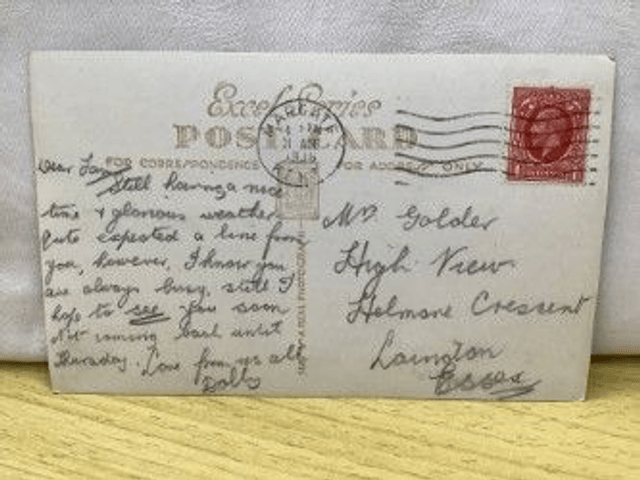 Excel Series
POSTCARD
FOR CORRESPONDENCE FOR ADDRESS ONLY
MARGATE
Dear
Still having a nice
time & glorious weather
quite expected a line from
you, however, I know you
are always busy, still I
hope to see you soon
Not coming back until
Thursday. Love from us all
Dolly
Mrs Golder
High View
Helmore Crescent
Laington
Essex